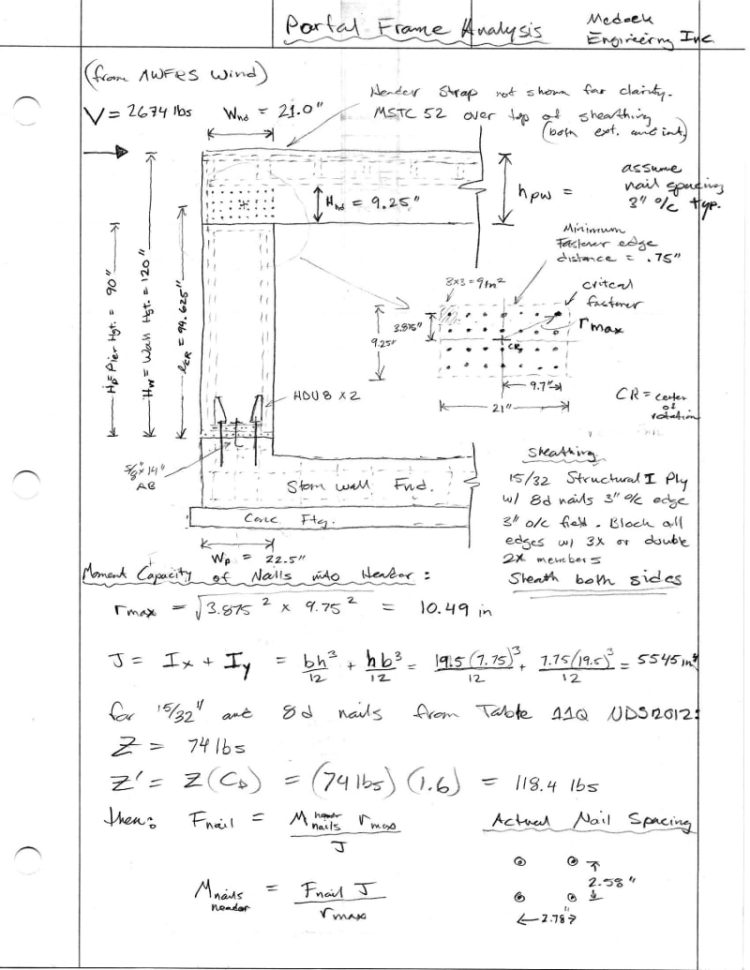 Portal Frame Analysis
Medeek
Engineering Inc.
(from MWFRS Wind)
V = 2674 lbs
Whd = 21.0"
Header Strap not shown for clarity.
MSTC 52 over top of sheathing
(both ext. and int.)
Hhd = 9.25"
hpw =
assume
nail spacing
3" o/c typ.
Hp = Pier Hgt. = 90"
Hw = Wall Hgt. = 120"
lCR = 94.625"
Minimum
Fastener edge
distance = .75"
3x3 = 9in²
critcal
fastener
rmax
3.875"
9.25"
CR
9.7"
21"
CR = center
of
rotation
HDU8 x 2
5/8" x 14"
AB
Stem wall Fnd.
Conc Ftg.
Wp = 22.5"
Sheathing
15/32 Structural I Ply
w/ 8d nails 3" o/c edge
3" o/c field. Block all
edges w/ 3x or double
2x members
Sheath both sides
Moment Capacity of Nails into Header:
rmax = √3.875² x 9.75² = 10.49 in
J = Ix + Iy = bh³/12 + hb³/12 = 19.5(7.75)³/12 + 7.75(19.5)³/12 = 5545 in⁴
for 15/32" and 8d nails from Table 11Q NDS2012:
Z = 74 lbs
Z' = Z(CD) = (74 lbs)(1.6) = 118.4 lbs
then: Fnail = Mnails header rmax / J
Actual Nail Spacing
2.58"
2.78"
Mnails header = Fnail J / rmax